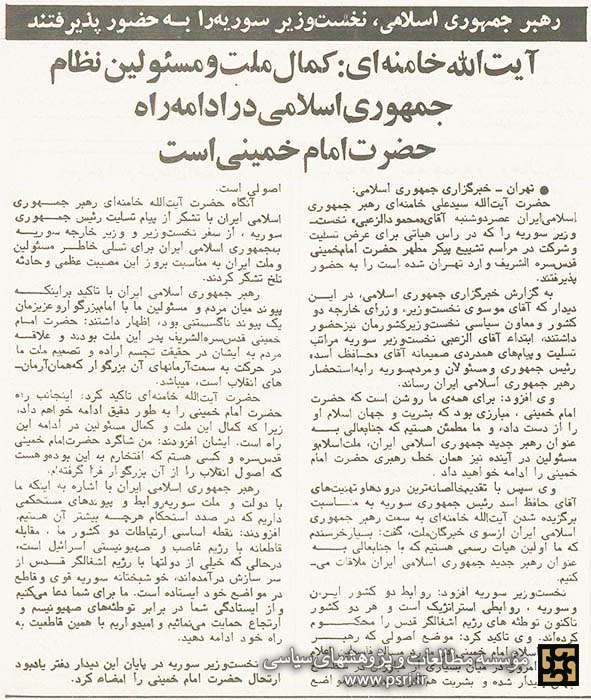 رهبر جمهوری اسلامی، نخست‌وزیر سوریه را به حضور پذیرفتند
آیت‌الله خامنه‌ای: کمال ملت و مسئولین نظام
جمهوری اسلامی در ادامه راه
حضرت امام خمینی است
● تهران - خبرگزاری جمهوری اسلامی:
حضرت آیت‌الله سیدعلی خامنه‌ای رهبر جمهوری
اسلامی ایران عصر دوشنبه آقای «محمود الزعبی» نخست‌-
وزیر سوریه را که در راس هیاتی برای عرض تسلیت
و شرکت در مراسم تشییع پیکر مطهر حضرت امام خمینی
قدس‌سره الشریف وارد تهران شده است را به حضور
پذیرفتند.
به گزارش خبرگزاری جمهوری اسلامی، در این
دیدار که آقای موسوی نخست‌وزیر، وزرای خارجه دو
کشور و معاون سیاسی نخست‌وزیر کشورمان نیز حضور
داشتند، ابتداء آقای الزعبی نخست‌وزیر سوریه مراتب
تسلیت و پیام‌های همدردی صمیمانه آقای حافظ اسد،
رئیس جمهوری و مسئولان و مردم سوریه را به استحضار
رهبر جمهوری اسلامی ایران رساند.
وی افزود: برای همه‌ی ما روشن است که حضرت
امام خمینی ، مبارزی بود که بشریت و جهان اسلام او
را از دست داد، و ما مطمئن هستیم که جنابعالی به
عنوان رهبر جدید جمهوری اسلامی ایران، ملت اسلام و
مسئولین در آینده نیز همان خط رهبری حضرت امام
خمینی را ادامه خواهید داد.
وی سپس با تقدیم خالصانه‌ترین درودها و تهنیت‌های
آقای حافظ اسد رئیس جمهوری سوریه به مناسبت
برگزیده شدن آیت‌الله خامنه‌ای به سمت رهبر جمهوری
اسلامی ایران از سوی خبرگان ملت، گفت: بسیار خرسندم
که ما اولین هیات رسمی هستیم که با جنابعالی به
عنوان رهبر جدید جمهوری اسلامی ایران ملاقات می‌-
کنیم.
نخست‌وزیر سوریه افزود: روابط دو کشور ایران
و سوریه ، روابطی استراتژیک است و هر دو کشور
تاکنون توطئه های رژیم اشغالگر قدس را محکوم
کرده‌اند. وی تاکید کرد: موضع اصولی که رهبر
اصولی است.
آنگاه حضرت آیت‌الله خامنه‌ای رهبر جمهوری
اسلامی ایران با تشکر از پیام تسلیت رئیس جمهوری
سوریه ، از سفر نخست‌وزیر و وزیر خارجه سوریه
به جمهوری اسلامی ایران برای تسلی خاطر مسئولین
و ملت ایران به مناسبت بروز این مصیبت عظمی و حادثه
تلخ تشکر کردند.
رهبر جمهوری اسلامی ایران با تاکید بر اینکه
پیوند میان مردم و مسئولین ما با امام بزرگوار و عزیزمان
یک پیوند ناگسستنی بود، اظهار داشتند: حضرت امام
خمینی قدس‌سره الشریف پدر این ملت بودند و علاقه
مردم به ایشان در حقیقت تجسم اراده و تصمیم ملت ما
در حرکت به سمت آرمانهای آن بزرگوار که همان آرمان‌-
های انقلاب است، میباشد.
حضرت آیت‌الله خامنه‌ای تاکید کرد: اینجانب راه
حضرت امام خمینی را به طور دقیق ادامه خواهم داد،
زیرا که کمال این ملت و کمال مسئولین در ادامه این
راه است. ایشان افزودند: من شاگرد حضرت امام خمینی
قدس‌سره و کسی هستم که افتخارم به این بوده و هست
که اصول انقلاب را از آن بزرگوار فرا گرفته‌ام.
رهبر جمهوری اسلامی ایران با اشاره به اینکه ما
با دولت و ملت سوریه روابط و پیوندهای مستحکمی
داریم که در صدد استحکام هرچه بیشتر آن هستیم،
افزودند: نقطه اساسی ارتباطات دو کشور ما ، مقابله
قاطعانه با رژیم غاصب و صهیونیستی اسرائیل است،
درحالی که خیلی از دولتها با رژیم اشغالگر قدس از
سر سازش درآمده‌اند، خوشبختانه سوریه قوی و قاطع
در مواضع خود ایستاده است. ما برای شما دعا می‌کنیم
و از ایستادگی شما در برابر توطئه‌های صهیونیسم و
ارتجاع حمایت می‌نمائیم و امیدواریم با همین قاطعیت به
راه خود ادامه دهید.
نخست‌وزیر سوریه در پایان این دیدار دفتر یادبود
ارتحال حضرت امام خمینی را امضاء کرد.
موسسه مطالعات و پژوهشهای سیاسی
www.psri.ir